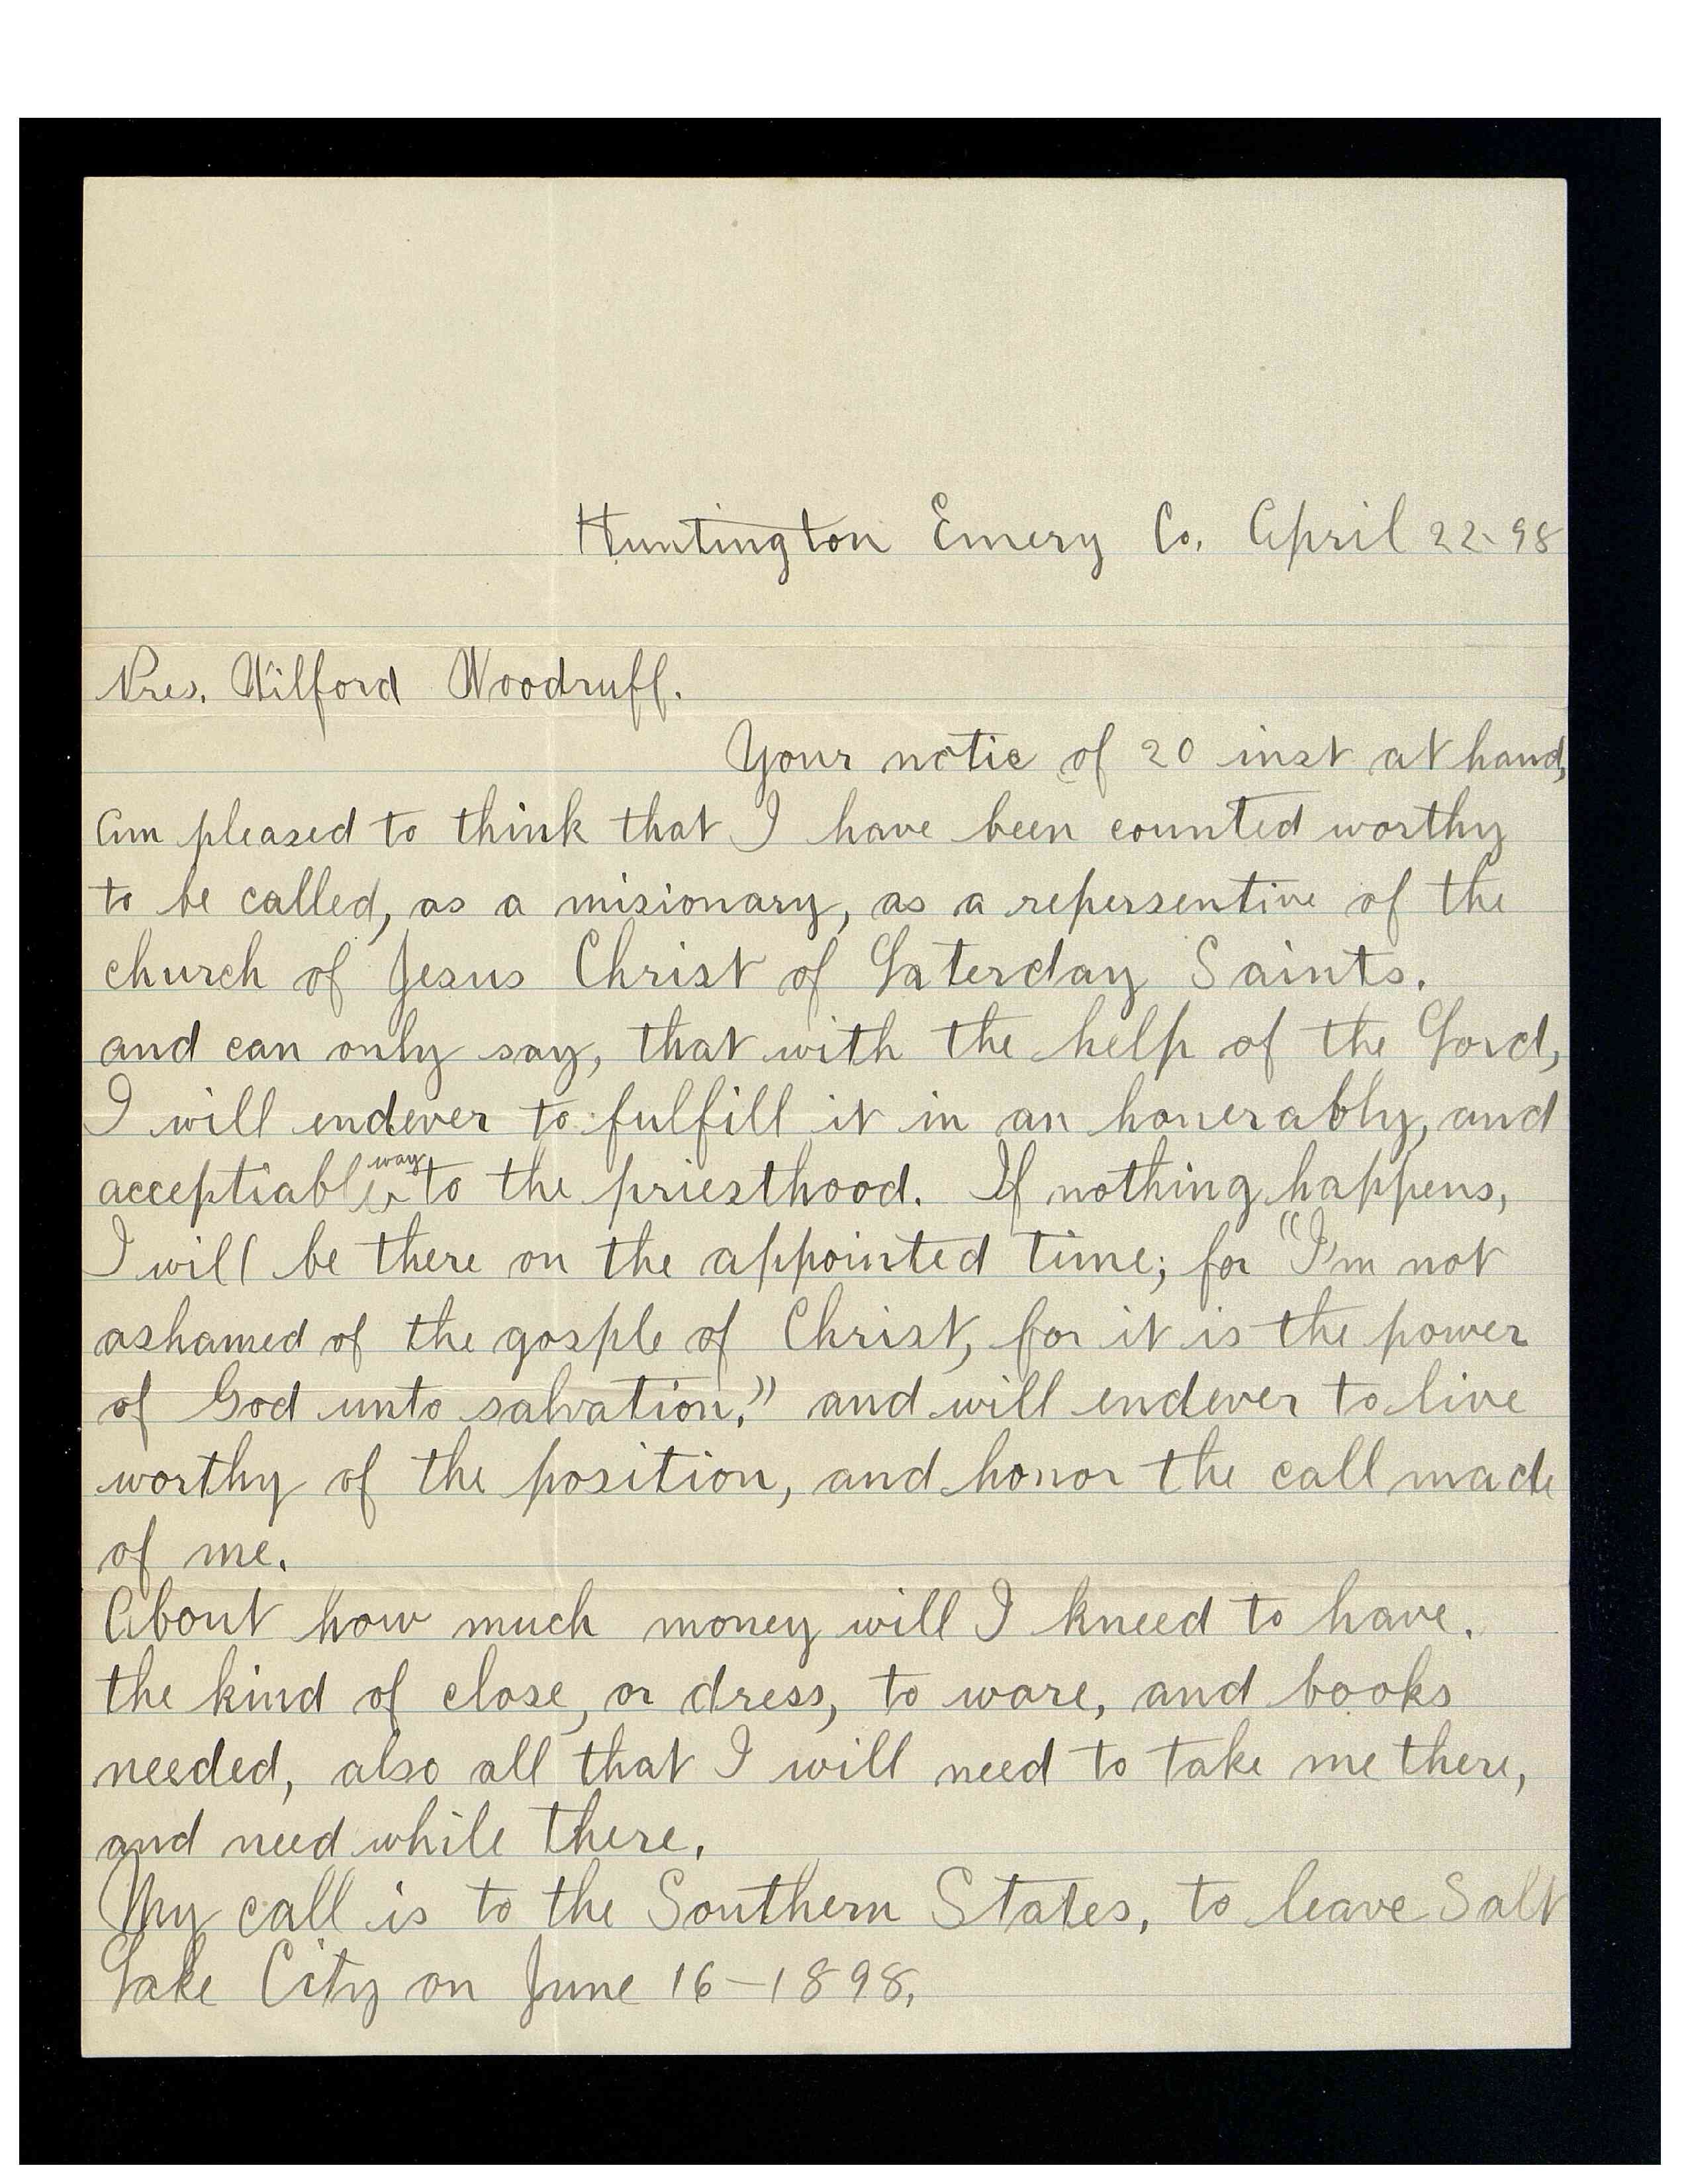 Huntington Emery Co. April 22-98
Pres. Wilford Woodruff.
Your notie of 20 inst at hand,
Am pleased to think that I have been counted worthy
to be called, as a misionary, as a repersentive of the
church of Jesus Christ of Laterday Saints.
and can only say, that with the help of the Lord,
I will endever to fulfill it in an honerably, and
acceptiable way to the priesthood. If nothing happens,
I will be there on the appointed time; for "I'm not
ashamed of the gosple of Christ, for it is the power
of God unto salvation." and will endever to live
worthy of the position, and honor the call made
of me.
About how much money will I kneed to have.
the kind of close, or dress, to ware, and books
needed, also all that I will need to take me there,
and need while there.
My call is to the Southern States, to leave Salt
Lake City on June 16-1898.